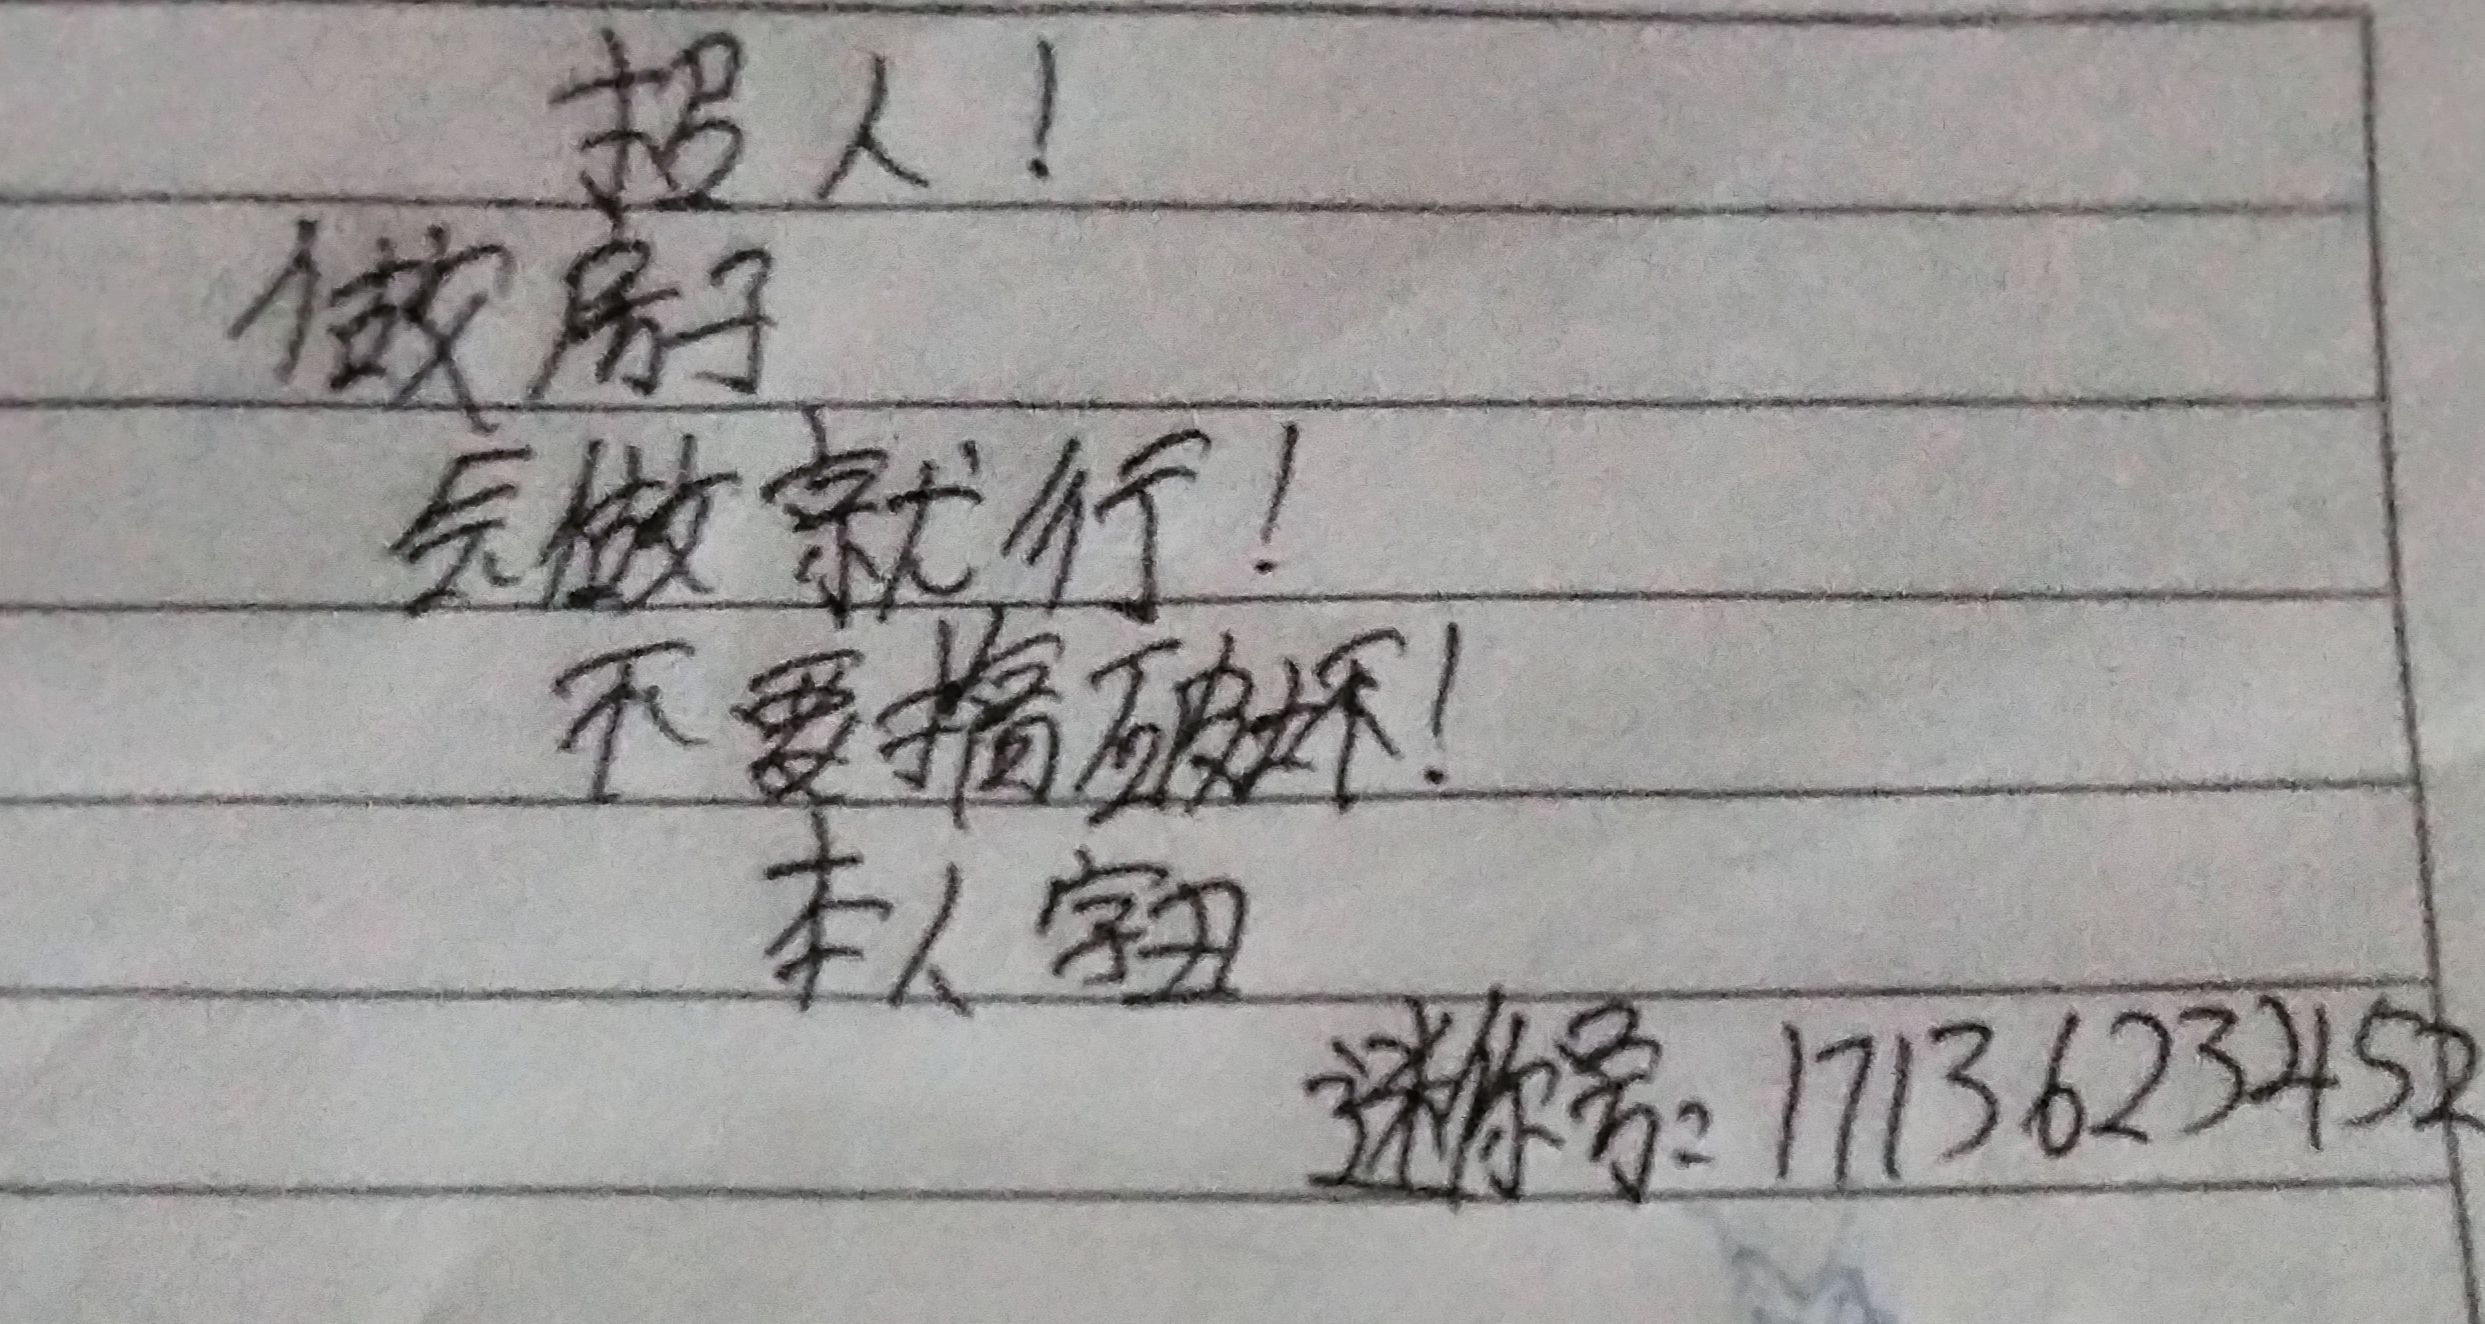 招人!
做房子
会做就行!
不要搞破坏!
本人字丑
迷你号:1713623452